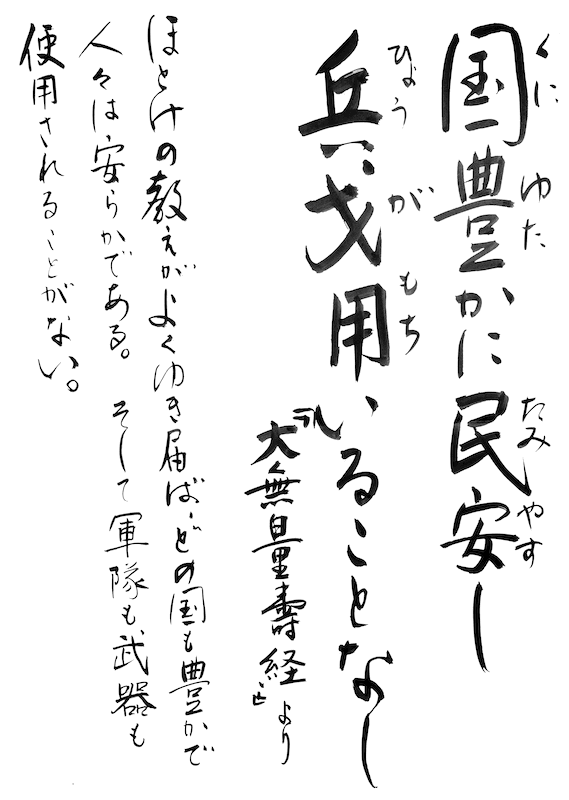 国豊かに民安し
くに ゆた たみやす
兵戈用いることなし
ひょう が もち
『大無量寿経』より
ほとけの教えがよくゆき届けば、どの国も豊かで
人々は安らかである。そして軍隊も、武器も
使用されることがない。